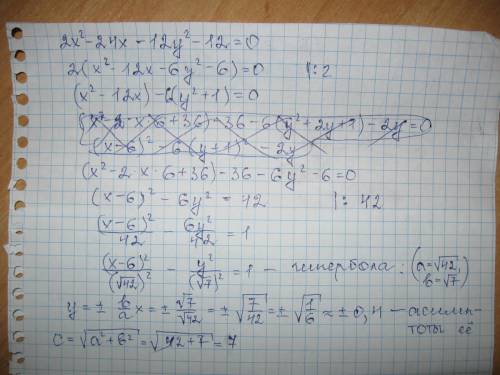 2x²-24x-12y²-12=0
2(x²-12x-6y²-6)=0 |:2
(x²-12x)-6(y²+1)=0
(x²-2·x·6+36)-36-6(y²+2y+1)-2y=0
(x-6)²-6(y+1)²-2y
(x²-2·x·6+36)-36-6y²-6=0
(x-6)²-6y²=42 |:42
(x-6)²/42 - 6y²/42 = 1
(x-6)²/(√42)² - y²/(√7)² = 1 - гипербола: (a=√42, b=√7)
y=± b/a x=± √7/√42 = ±√(7/42) = ±√(1/6) ≈ ±0,4 - асимп-
тоты её
c=√(a²+b²)=√(42+7)=7